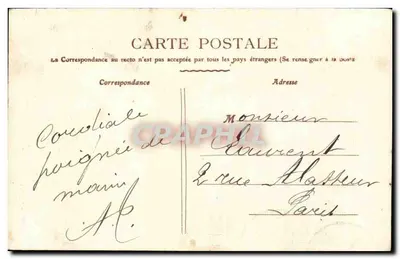 CARTE POSTALE
La Correspondance au recto n'est pas acceptée par tous les pays étrangers (Se renseigner à la Poste)
Correspondance
Adresse
Cordiale
poignée de
main
A.C.
CPAPHIL
Monsieur
Laurent
2 rue Alasseur
Paris